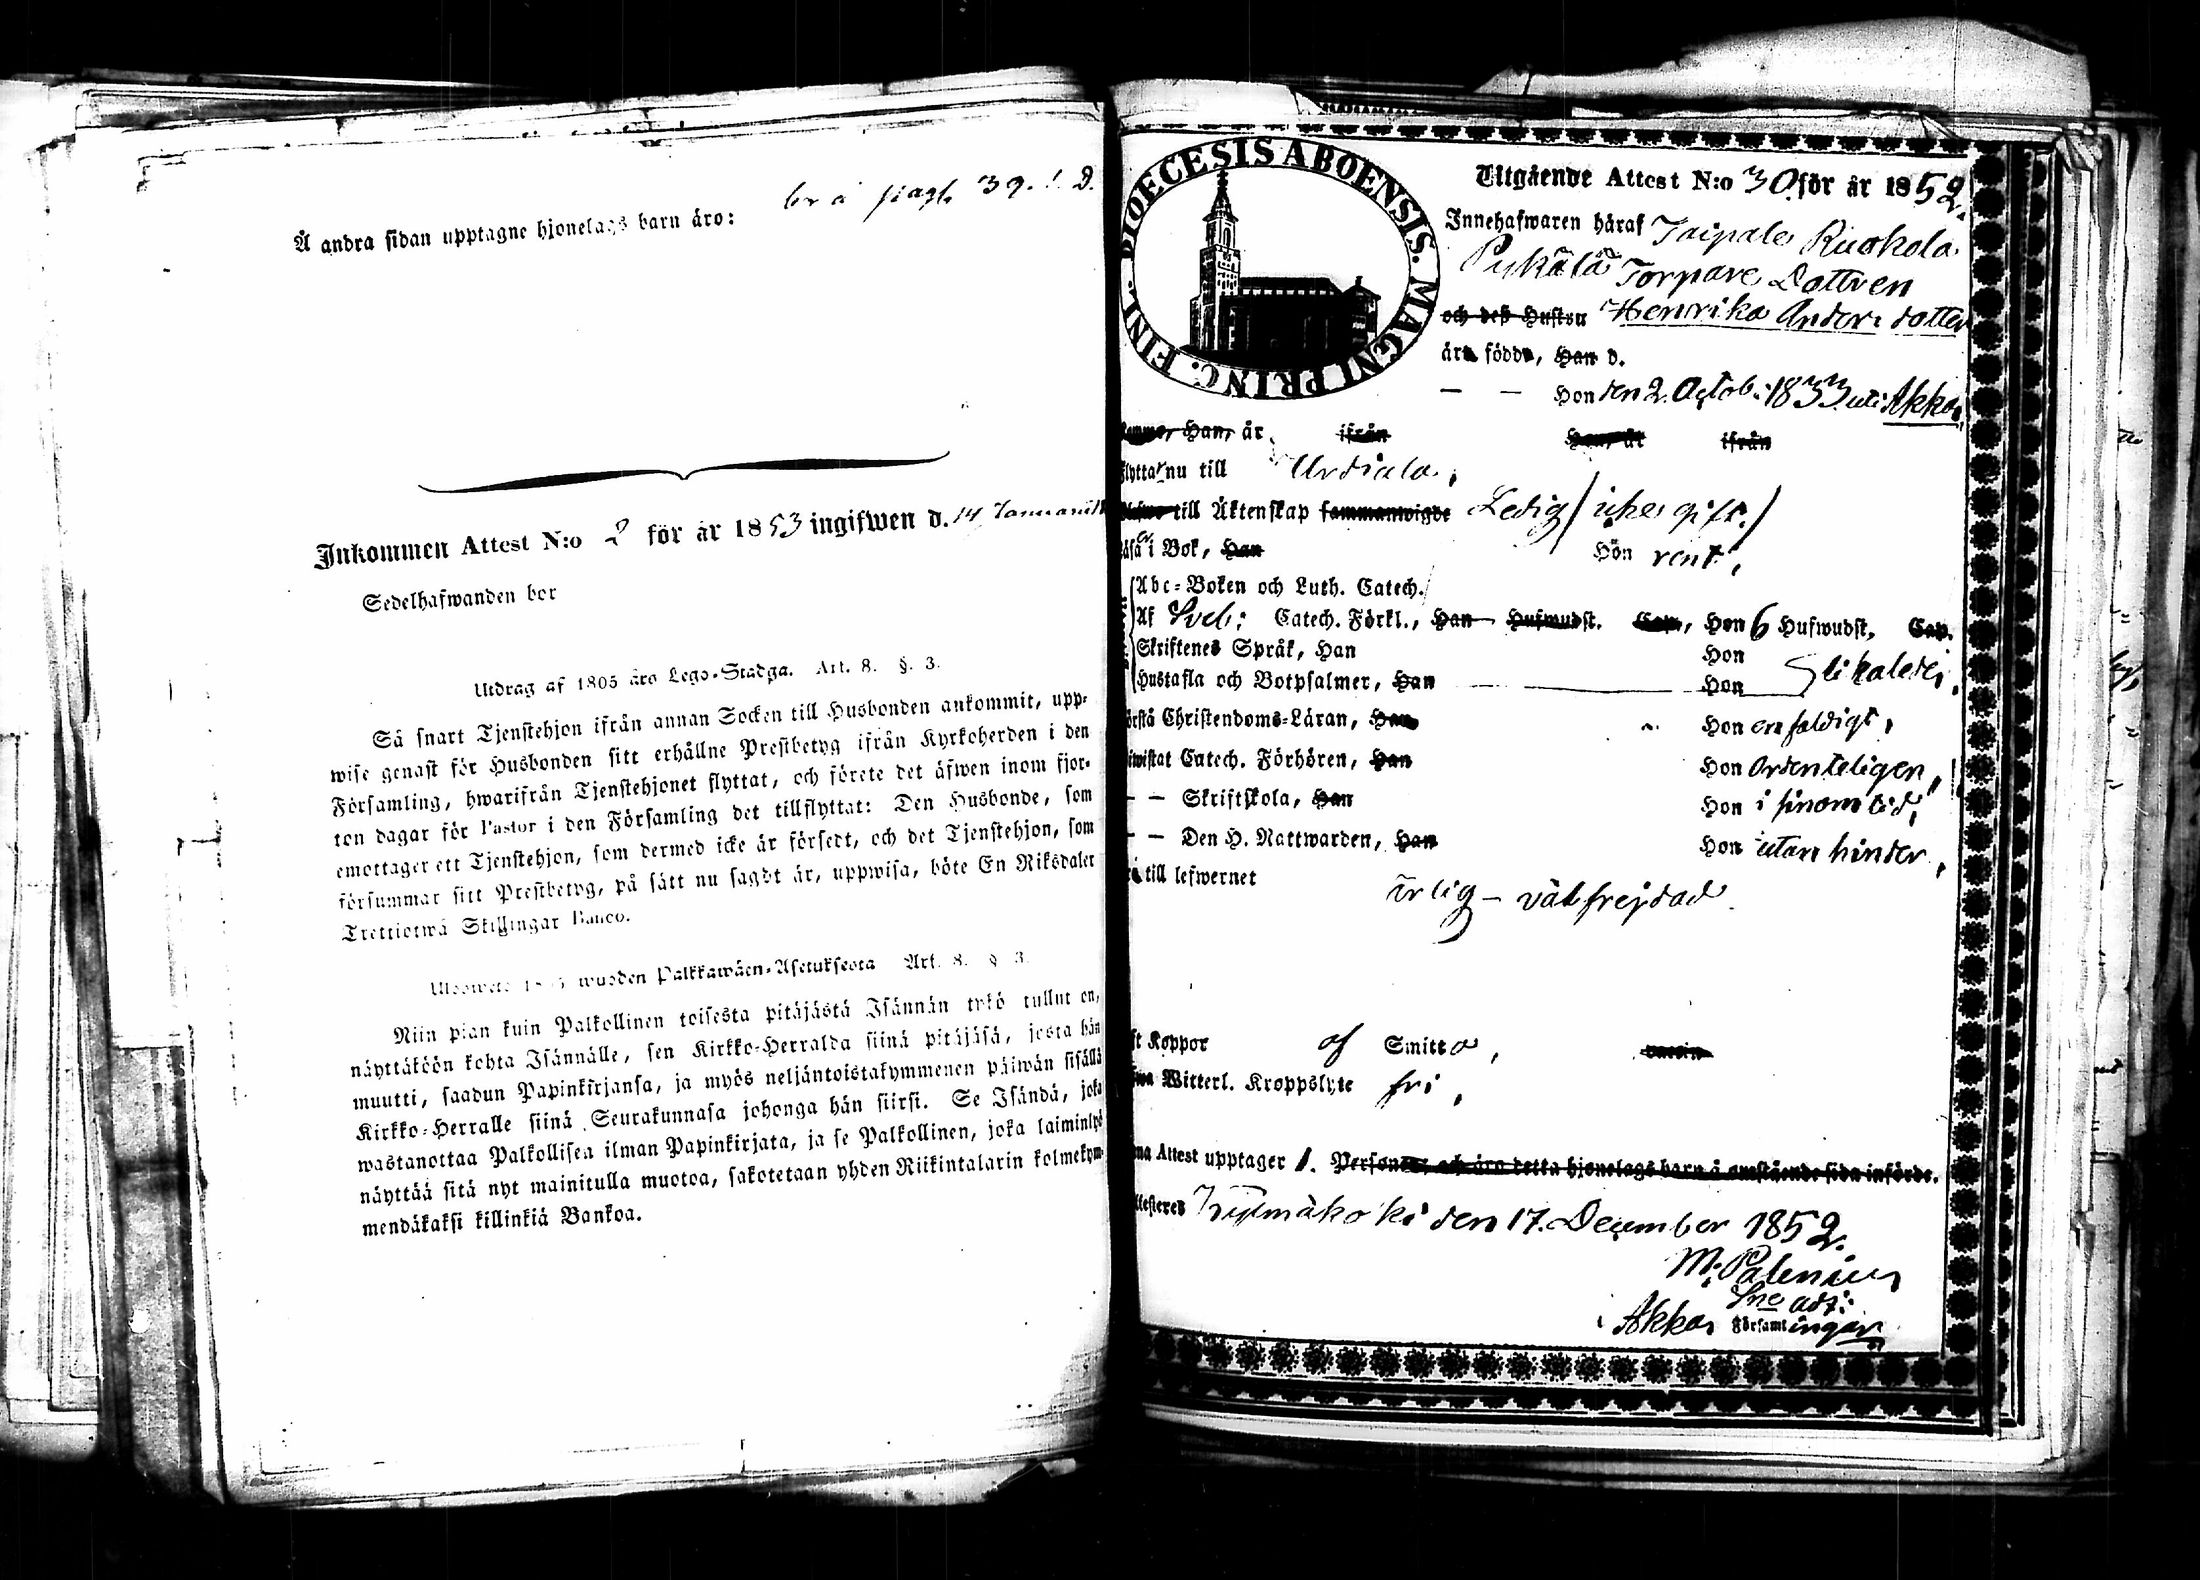 bor å pag. 39. D.
Å andra sidan upptagne hjonelags barn äro:
Inkommen Attest N:o 2 för år 1853 ingifwen d. 14 Januarii
Sedelhafwanden bor
Utdrag af 1805 års Lego-Stadga. Art. 8. §. 3.
Så snart Tjenstehjon ifrån annan Socken till Husbonden ankommit, upp-
wise genast för Husbonden sitt erhållne Prestbetyg ifrån Kyrkoherden i den
Församling, hwarifrån Tjenstehjonet flyttat, och förete det äfwen inom fjor-
ton dagar för Pastor i den Församling det tillflyttat: Den Husbonde, som
emottager ett Tjenstehjon, som dermed icke är försedt, och det Tjenstehjon, som
försummar sitt Prestbetyg, på sätt nu sagdt är, uppwisa, böte En Riksdaler
Trettiotwå Skillingar Banco.
wuoden Palkkawäen-Asetuksesta Art. 8. § 3.
Niin pian kuin Palkollinen toisesta pitäjästä Isännän tykö tullut on,
näyttäköön kohta Isännälle, sen Kirkko-Herralda siinä pitäjäsä, josta hän
muutti, saadun Papinkirjansa, ja myös neljäntoistakymmenen päiwän sisällä
Kirkko-Herralle siinä Seurakunnasa johonga hän siirsi. Se Isändä, joka
wastanottaa Palkollisen ilman Papinkirjata, ja se Palkollinen, joka laiminlyö
näyttää sitä nyt mainitulla muotoa, sakotetaan yhden Riikintalarin kolmekym-
mendäkaksi killinkiä Bankoa.
DIOECESIS ABOENSIS. MAGNI PRINC. FINL.
Utgående Attest N:o 30. för år 1852.
Innehafwaren häraf Taipale Ruokola
Pukälä Torpare Dottren
och deß Hustru Henrika Anders dotter
äro född, Han d.
— — Hon den 2. Octob: 1833. uti Akkas
Han, år ifrån Han, år ifrån
flyttar nu till Urdiala,
till Äktenskap sammanwigde Ledig (icke gift.)
läsa i Bok, Han Hon rent,
Abc-Boken och Luth. Catech.
Af Sveb: Catech. Förkl., Han Hufwudst. Cap., Hon 6 Hufwudst. Cap.
Skriftenes Språk, Han Hon
Hustafla och Botpsalmer, Han Hon likaledes,
förstå Christendoms-Läran, Han Hon enfaldigt,
bewistat Catech. Förhören, Han Hon ordenteligen,
— — Skriftskola, Han Hon i sinom tid,
— — Den H. Nattwarden, Han Hon utan hinder,
till lefwernet ärlig – välfrejdad
Koppor af Smitta,
Witterl. Kroppslyte fri,
Attest upptager 1. Person och äro detta hjonelags barn å omstående sida införde.
Attesteres Kylmäkoski den 17. December 1852.
M. Palenius
Sne adj:
i Akkas Församlingar